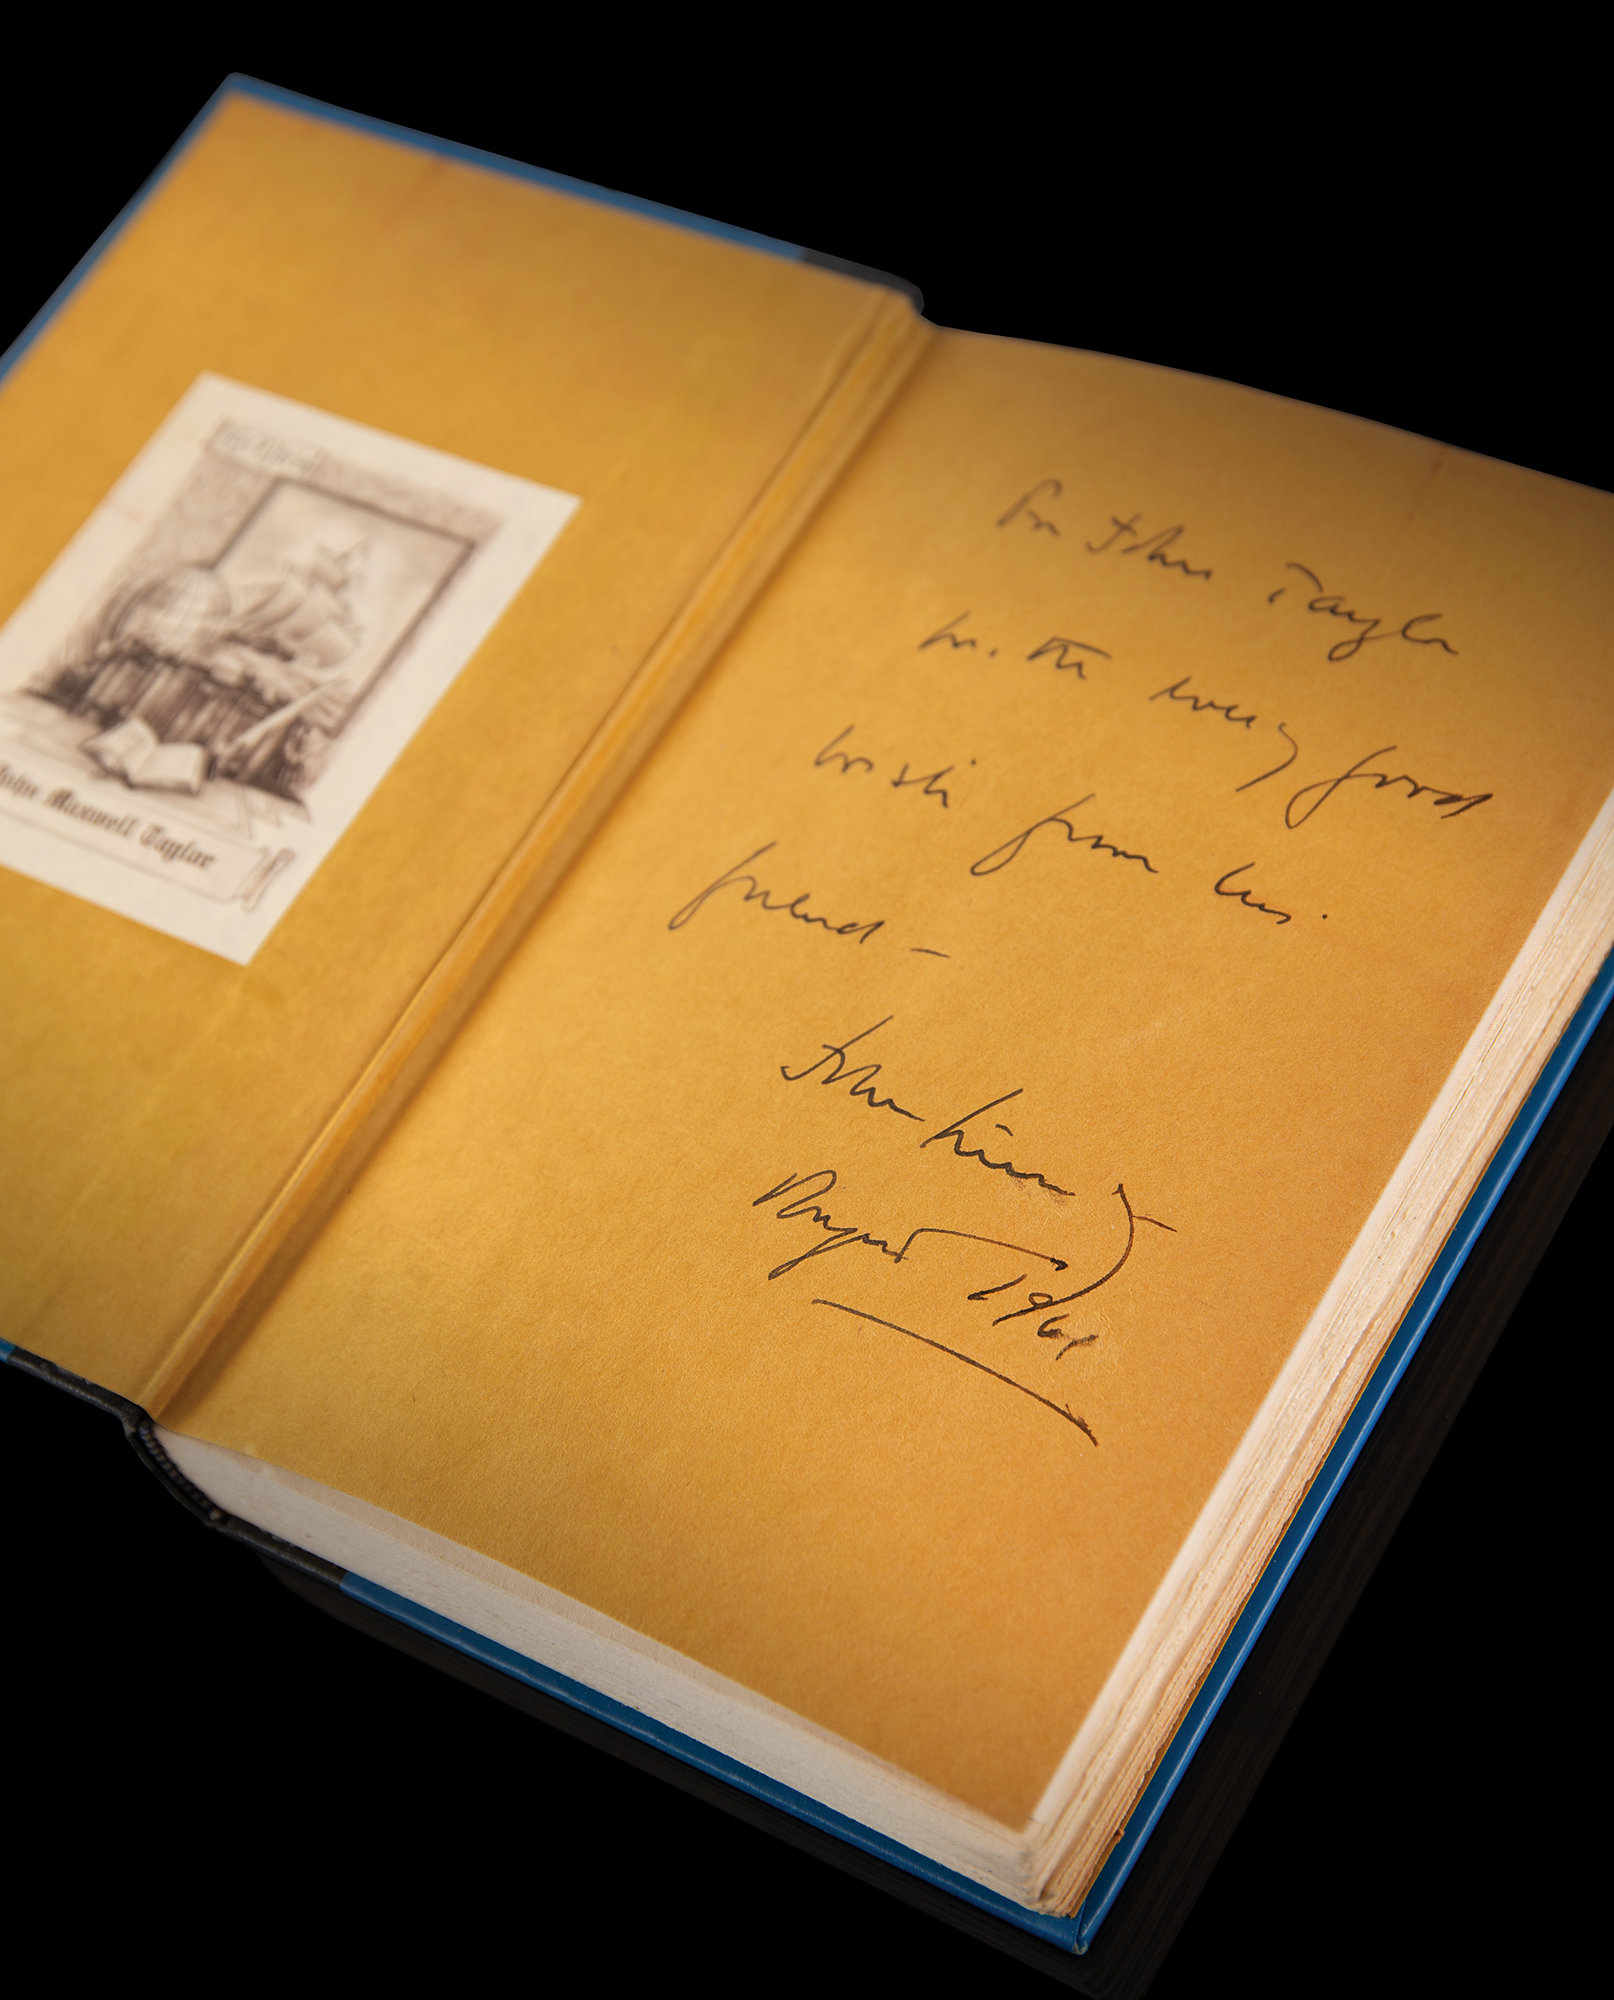 Ex Libris
John Maxwell Taylor
For John Taylor
with every good
wish from his
friend –
John Kennedy
August 1961